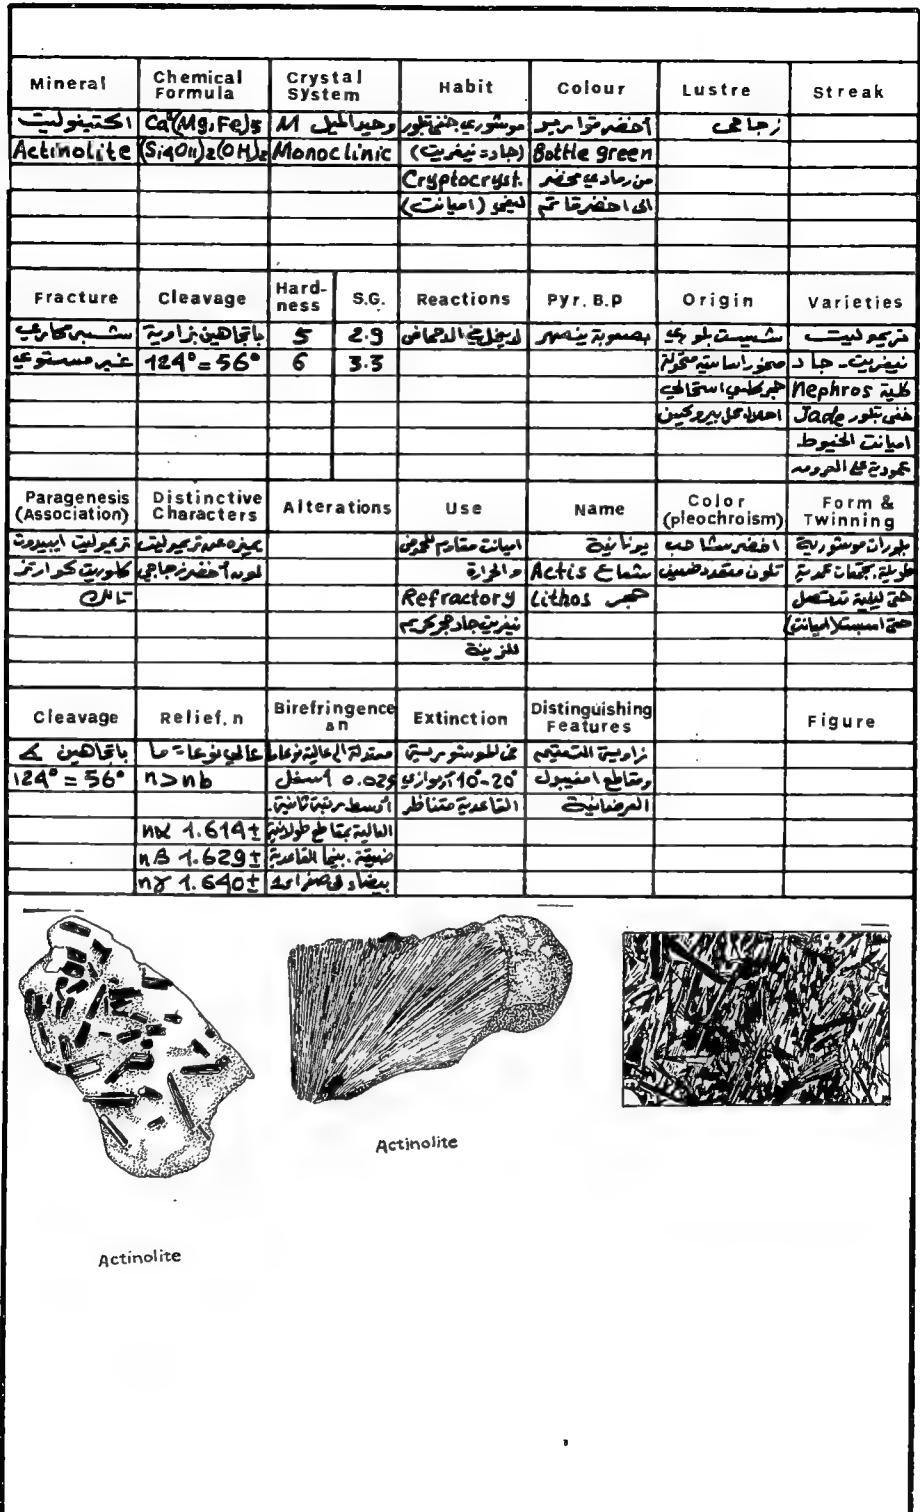 Mineral Chemical Formula Crystal System Habit Colour Lustre Streak
اكتينوليت Ca2(Mg,Fe)5 وحيد الميل M موشوري خفي تبلور أخضر قواريير زجاجي
Actinolite (Si4O11)2(OH)2 Monoclinic (جاد = نيفريت) Bottle green
Cryptocryst. من رمادي مخضر
ليفي (اميانت) الى اخضر قاتم
Fracture Cleavage Hardness S.G. Reactions Pyr. B.P Origin Varieties
شبه محاري باتجاهين بزاوية 5 2.9 لا ينحل في الاحماض بصعوبة ينصهر شيست بلوري تريموليت
غير مستوي 124° = 56° 6 3.3 صخور اساسية متحولة نيفريت - جاد
كلية Nephros
خفي تبلور Jade
اميانت الخيوط
عمودية على
Paragenesis (Association) Distinctive Characters Alterations Use Name Color (pleochroism) Form & Twinning
تريموليت ابيدوت يميزه عن تريموليت اميانت مقاوم للحموض يونانية اخضر شاحب بلورات موشورية
كلوريت كوارتز لونه أخضر زجاجي والحرارة شعاع Actis تلون متعدد ضعيف طويلة
تالك Refractory حجر Lithos حتى ليفية
نيفريت جاد حجر كريم (اميانت)
للزينة
Cleavage Relief. n Birefringence Δn Extinction Distinguishing Features Figure
باتجاهين عالي نوعا ما معتدلة الى عالية نوعا زاوية التعتيم
124° = 56° n>nb 0.025 10°-20° ومقاطع امفيبول
القاعدية متناظر العرضانية
nα 1.614± العالية بمقاطع طولانية
nβ 1.629± ضيقة. بينما القاعدية
nγ 1.640± بيضاء
Actinolite
Actinolite